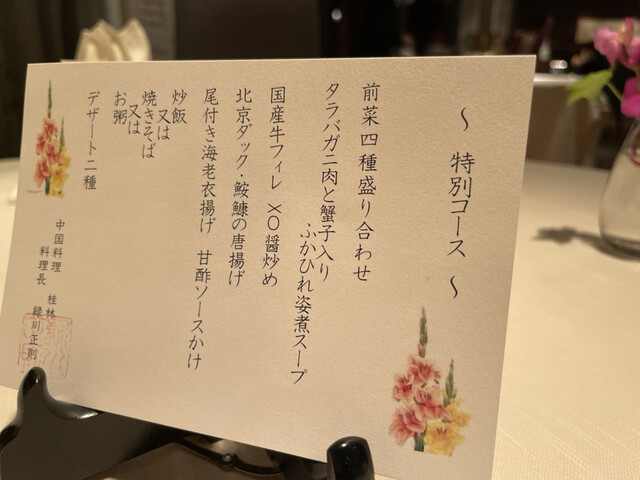 ～ 特別コース ～
前菜四種盛り合わせ
タラバガニ肉と蟹子入り
ふかひれ姿煮スープ
国産牛フィレ XO醤炒め
北京ダック・鮟鱇の唐揚げ
尾付き海老衣揚げ 甘酢ソースかけ
炒飯
又は
焼きそば
又は
お粥
デザート二種
中国料理 桂林
料理長 緑川正則